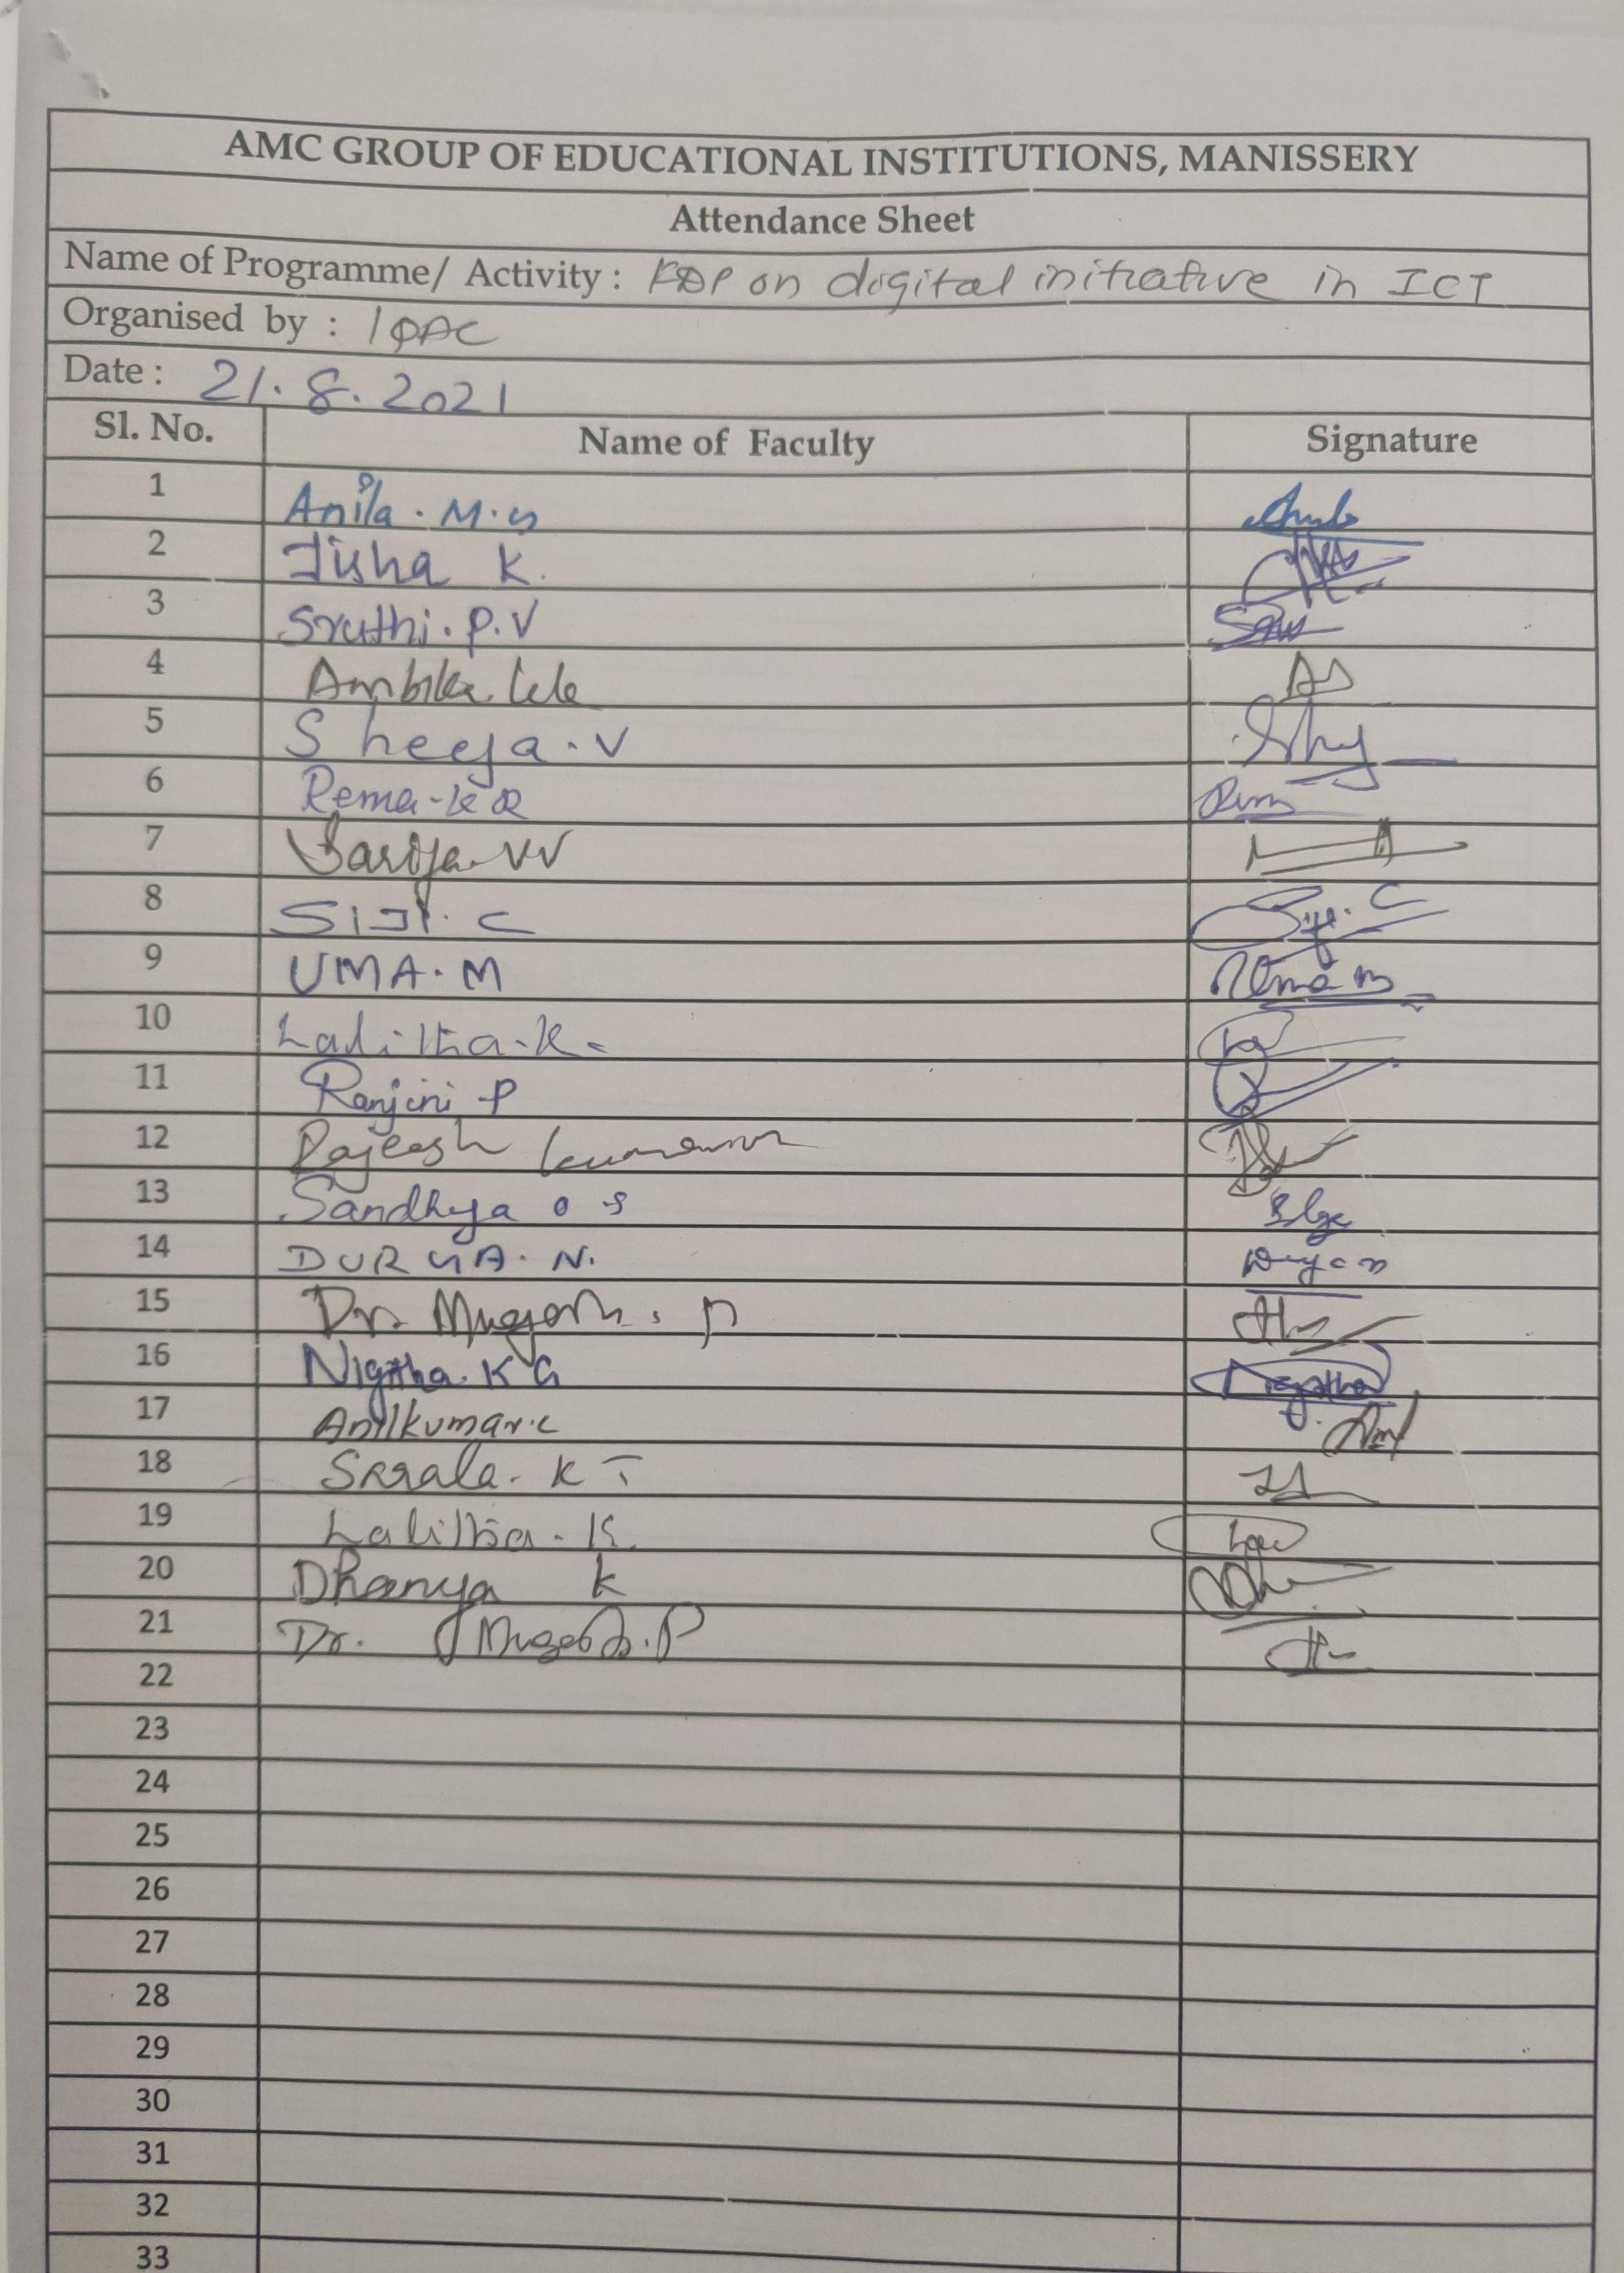 AMC GROUP OF EDUCATIONAL INSTITUTIONS, MANISSERY
Attendance Sheet
Name of Programme/ Activity : FDP on digital initiative in ICT
Organised by : IQAC
Date : 21.8.2021
Sl. No. Name of Faculty Signature
1 Anila . M.
2 Jisha K.
3 Sruthi. P. V
4 Ambika
5 Sheeja . V
6 Rema - K R
7 Sarija VV
8 SIJI. C Siji. C
9 UMA. M Uma m
10 Lalitha. K.
11 Ranjini P
12 Rajeesh
13 Sandhya O S
14 DURGA. N.
15 Dr.
16 Nigitha. K G Nigitha
17 Anilkumar. C
18 K T
19 Lalitha. K.
20 Dhanya K
21 Dr. P
22
23
24
25
26
27
28
29
30
31
32
33